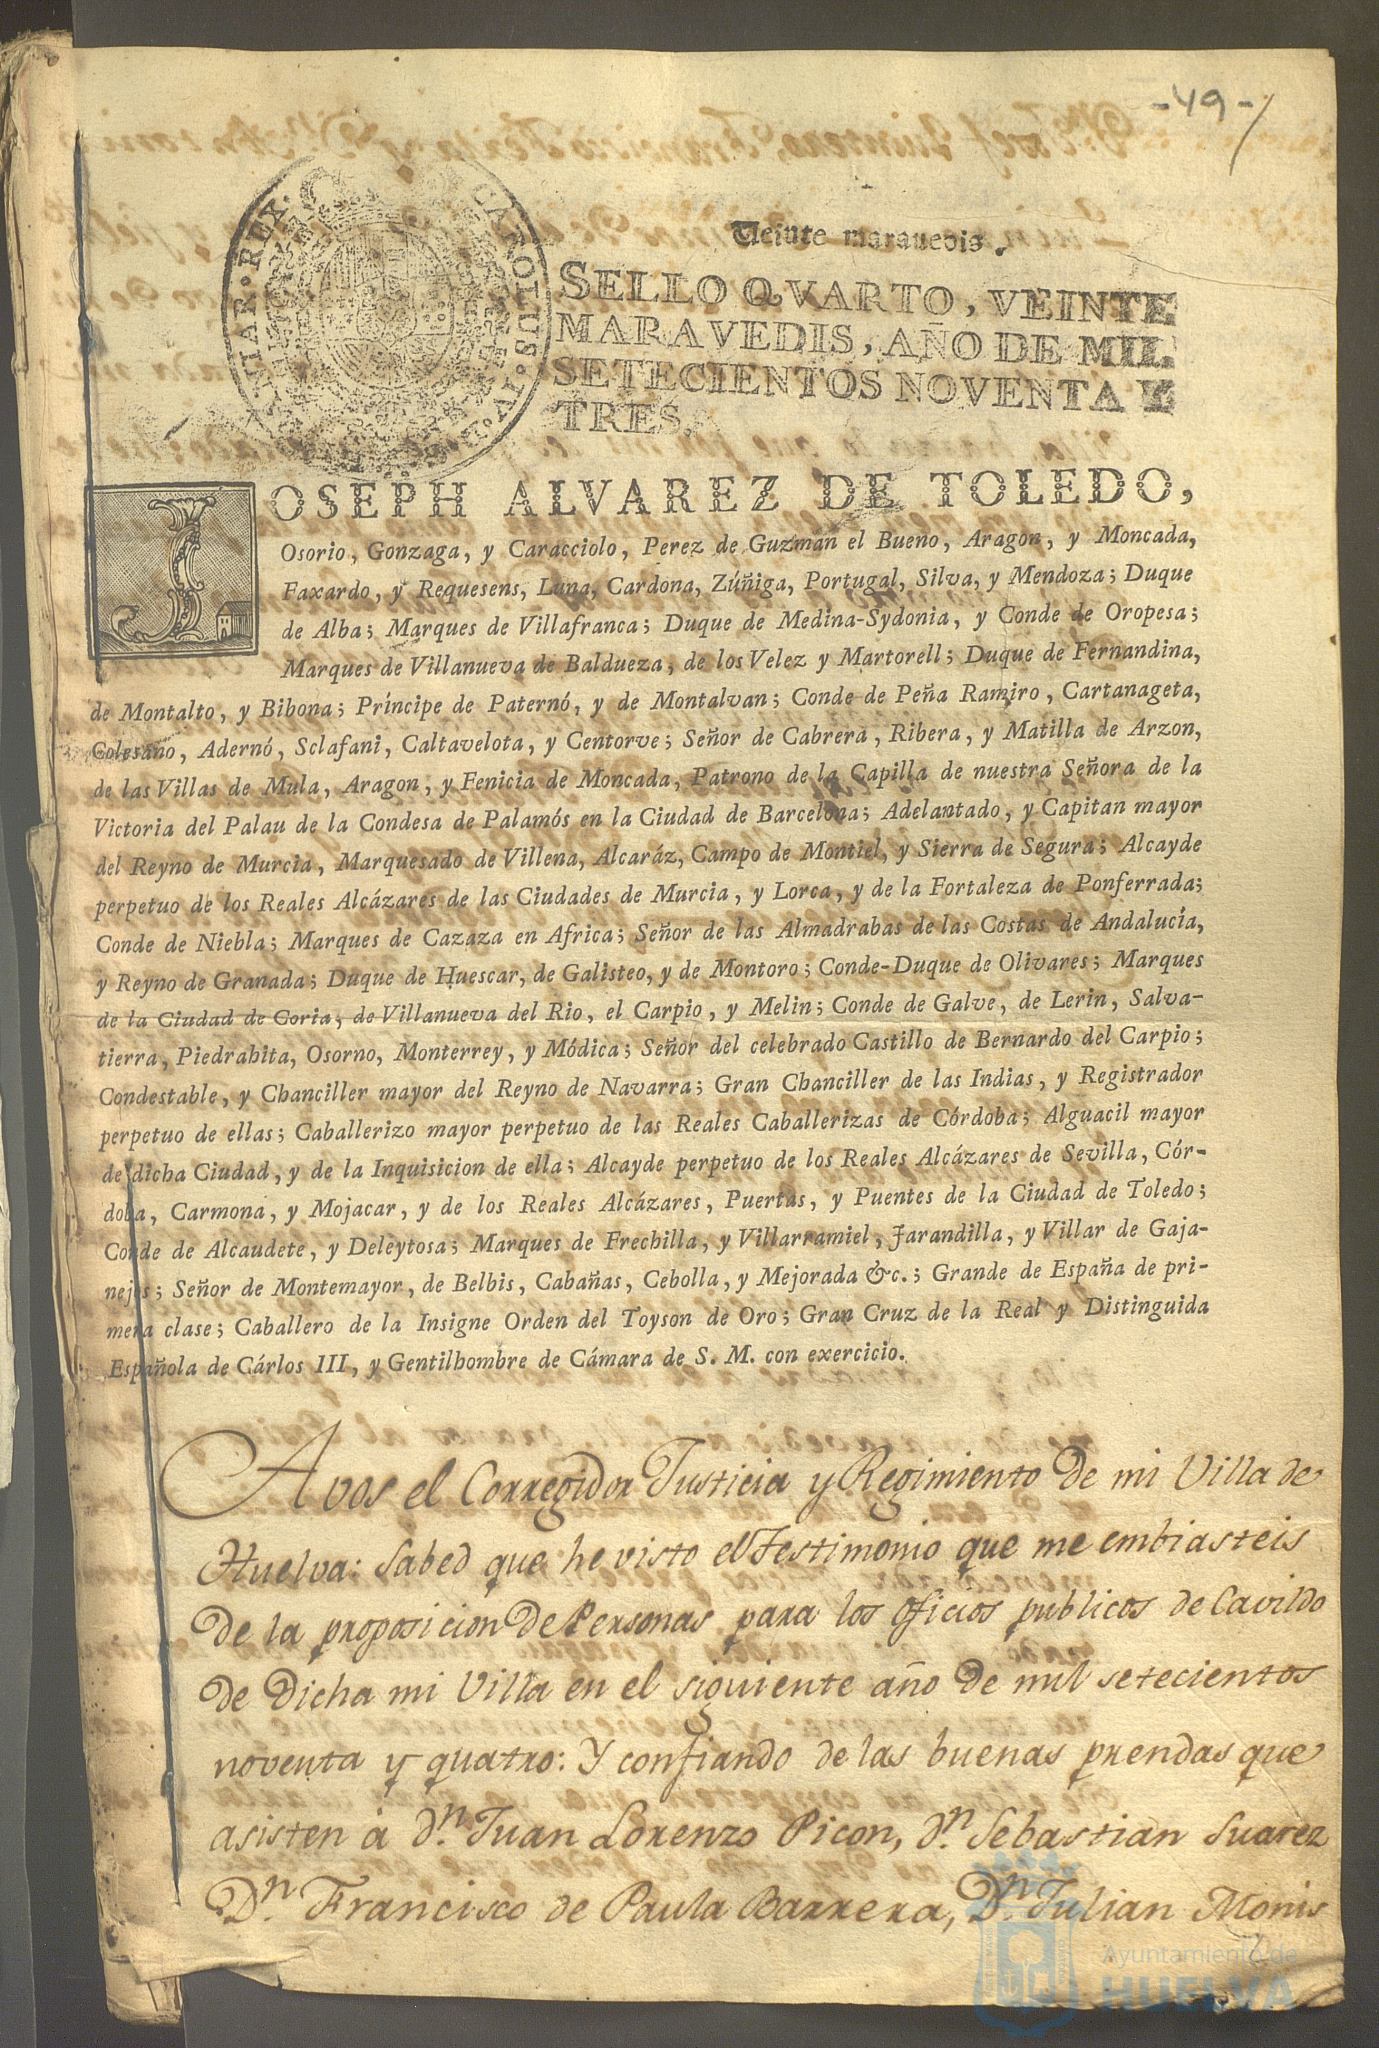 -49-
Veinte maravedis.
CAROLUS
HISPANIAR. REX.
SELLO QVARTO, VEINTE
MARAVEDIS, AÑO DE MIL
SETECIENTOS NOVENTA Y
TRES.
JOSEPH ALVAREZ DE TOLEDO,
Osorio, Gonzaga, y Caracciolo, Perez de Guzmán el Bueno, Aragon, y Moncada,
Faxardo, y Requesens, Luna, Cardona, Zúñiga, Portugal, Silva, y Mendoza; Duque
de Alba; Marques de Villafranca; Duque de Medina-Sydonia, y Conde de Oropesa;
Marques de Villanueva de Baldueza, de los Velez y Martorell; Duque de Fernandina,
de Montalto, y Bibona; Príncipe de Paternó, y de Montalvan; Conde de Peña Ramiro, Cartanageta,
Colesano, Adernó, Sclafani, Caltavelota, y Centorve; Señor de Cabrera, Ribera, y Matilla de Arzon,
de las Villas de Mula, Aragon, y Fenicia de Moncada, Patrono de la Capilla de nuestra Señora de la
Victoria del Palau de la Condesa de Palamós en la Ciudad de Barcelona; Adelantado, y Capitan mayor
del Reyno de Murcia, Marquesado de Villena, Alcaráz, Campo de Montiel, y Sierra de Segura; Alcayde
perpetuo de los Reales Alcázares de las Ciudades de Murcia, y Lorca, y de la Fortaleza de Ponferrada;
Conde de Niebla; Marques de Cazaza en Africa; Señor de las Almadrabas de las Costas de Andalucía,
y Reyno de Granada; Duque de Huescar, de Galisteo, y de Montoro; Conde-Duque de Olivares; Marques
de la Ciudad de Coria, de Villanueva del Rio, el Carpio, y Melin; Conde de Galve, de Lerin, Salva-
tierra, Piedrahita, Osorno, Monterrey, y Módica; Señor del celebrado Castillo de Bernardo del Carpio;
Condestable, y Chanciller mayor del Reyno de Navarra; Gran Chanciller de las Indias, y Registrador
perpetuo de ellas; Caballerizo mayor perpetuo de las Reales Caballerizas de Córdoba; Alguacil mayor
de dicha Ciudad, y de la Inquisicion de ella; Alcayde perpetuo de los Reales Alcázares de Sevilla, Cór-
doba, Carmona, y Mojacar, y de los Reales Alcázares, Puertas, y Puentes de la Ciudad de Toledo;
Conde de Alcaudete, y Deleytosa; Marques de Frechilla, y Villarramiel, Jarandilla, y Villar de Gaja-
nejos; Señor de Montemayor, de Belbis, Cabañas, Cebolla, y Mejorada &c.; Grande de España de pri-
mera clase; Caballero de la Insigne Orden del Toyson de Oro; Gran Cruz de la Real y Distinguida
Española de Cárlos III, y Gentilhombre de Cámara de S. M. con exercicio.
A vos el Corregidor Justicia y Regimiento de mi Villa de
Huelva: Sabed que he visto el Testimonio que me embiasteis
de la proposicion de Personas para los oficios publicos de Cavildo
de dicha mi Villa en el siguiente año de mil setecientos
noventa y quatro: Y confiando de las buenas prendas que
asisten á dn. Juan Lorenzo Picon, dn. Sebastian Suarez
Dn. Francisco de Paula Barrera, Dn. Julian Monis
Ayuntamiento de
HUELVA